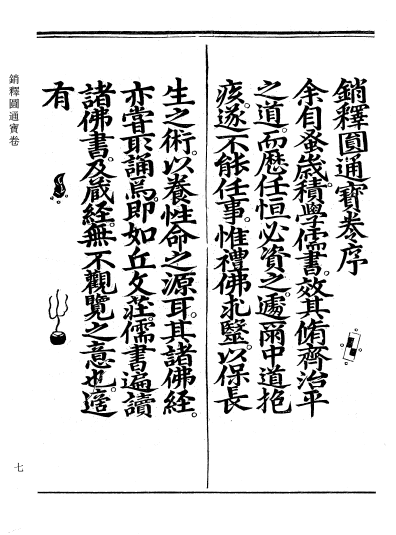 銷釋圓通寶卷序
余自蚤歲積學儒書。效其脩齊治平
之道。而歷任恒必資之。遽爾中道抱
疾。遂不能任事。惟禮佛求醫。以保長
生之術。以養性命之源耳。其諸佛經。
亦嘗取誦焉。即如丘文莊。儒書遍讀
諸佛書。及藏經。無不觀覽之意也。適
有
銷釋圓通寶卷
七